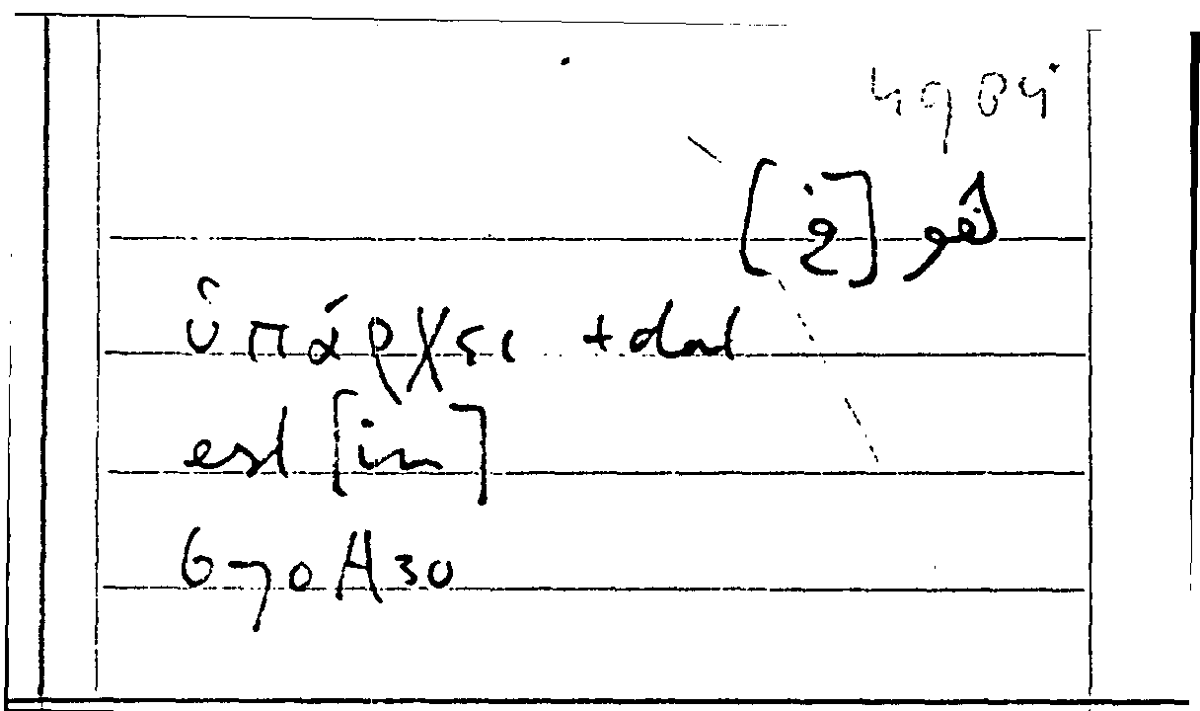 هو [في]
ὑπάρχει + dat
est [in]
670A30